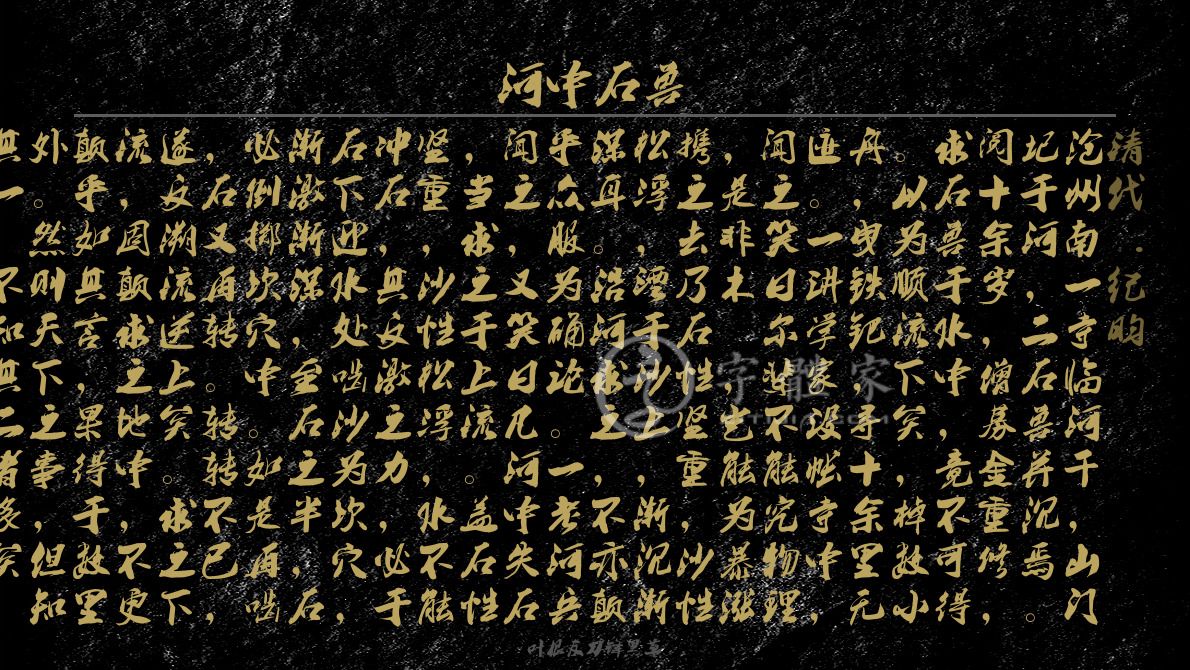 河中石兽
清代·纪昀
沧州南一寺临河干,山门
圮于河,二石兽并沉焉。
阅十余岁,僧募金重修,
求石兽于水中,竟不可得
。以为顺流下矣,棹数小
舟,曳铁钯,寻十余里无
迹。一讲学家设帐寺中,
闻之笑曰尔辈不能究物理
,是非木,岂能为暴涨
携之去乃石性坚重,沙性
松浮,湮于沙上,渐沉渐
深耳。沿河求之,不亦颠
乎众服为确论。一老河兵
闻之,又笑曰凡河中失石
,当求之于上流。盖石性
坚重,沙性松浮,水不能
冲石,其反激之力,必于
石下迎水处啮沙为坎穴,
渐激渐深,至石之半,石
必倒掷坎穴中。如是再啮
,石又再转。转转不已,
遂反溯流逆上矣。求之下
流,固颠求之地中,不更
颠乎如其言,果得于数里
外。然则天下之事,但知
其一不知其二者多矣
字體家